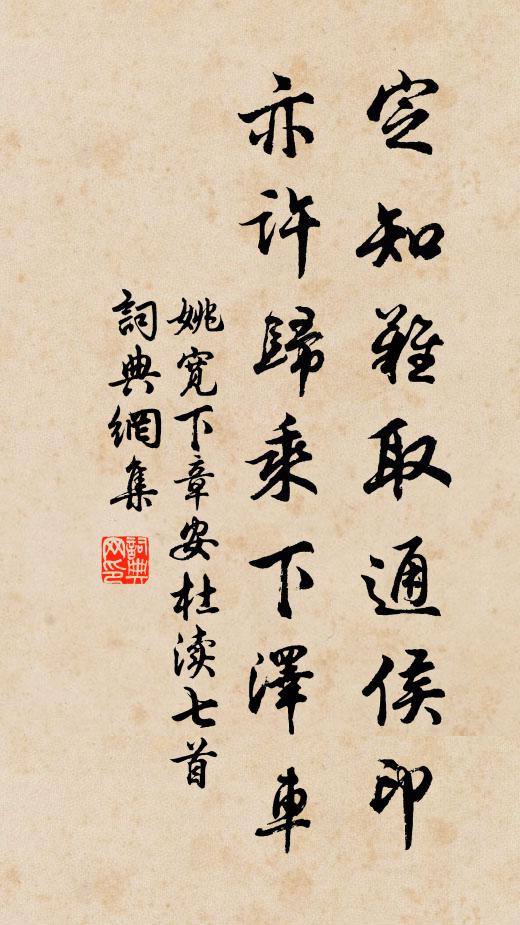 定知難取通侯印
亦許歸乘下澤車
姚寬下章安杜渎七首
詞典網集
詞典網印